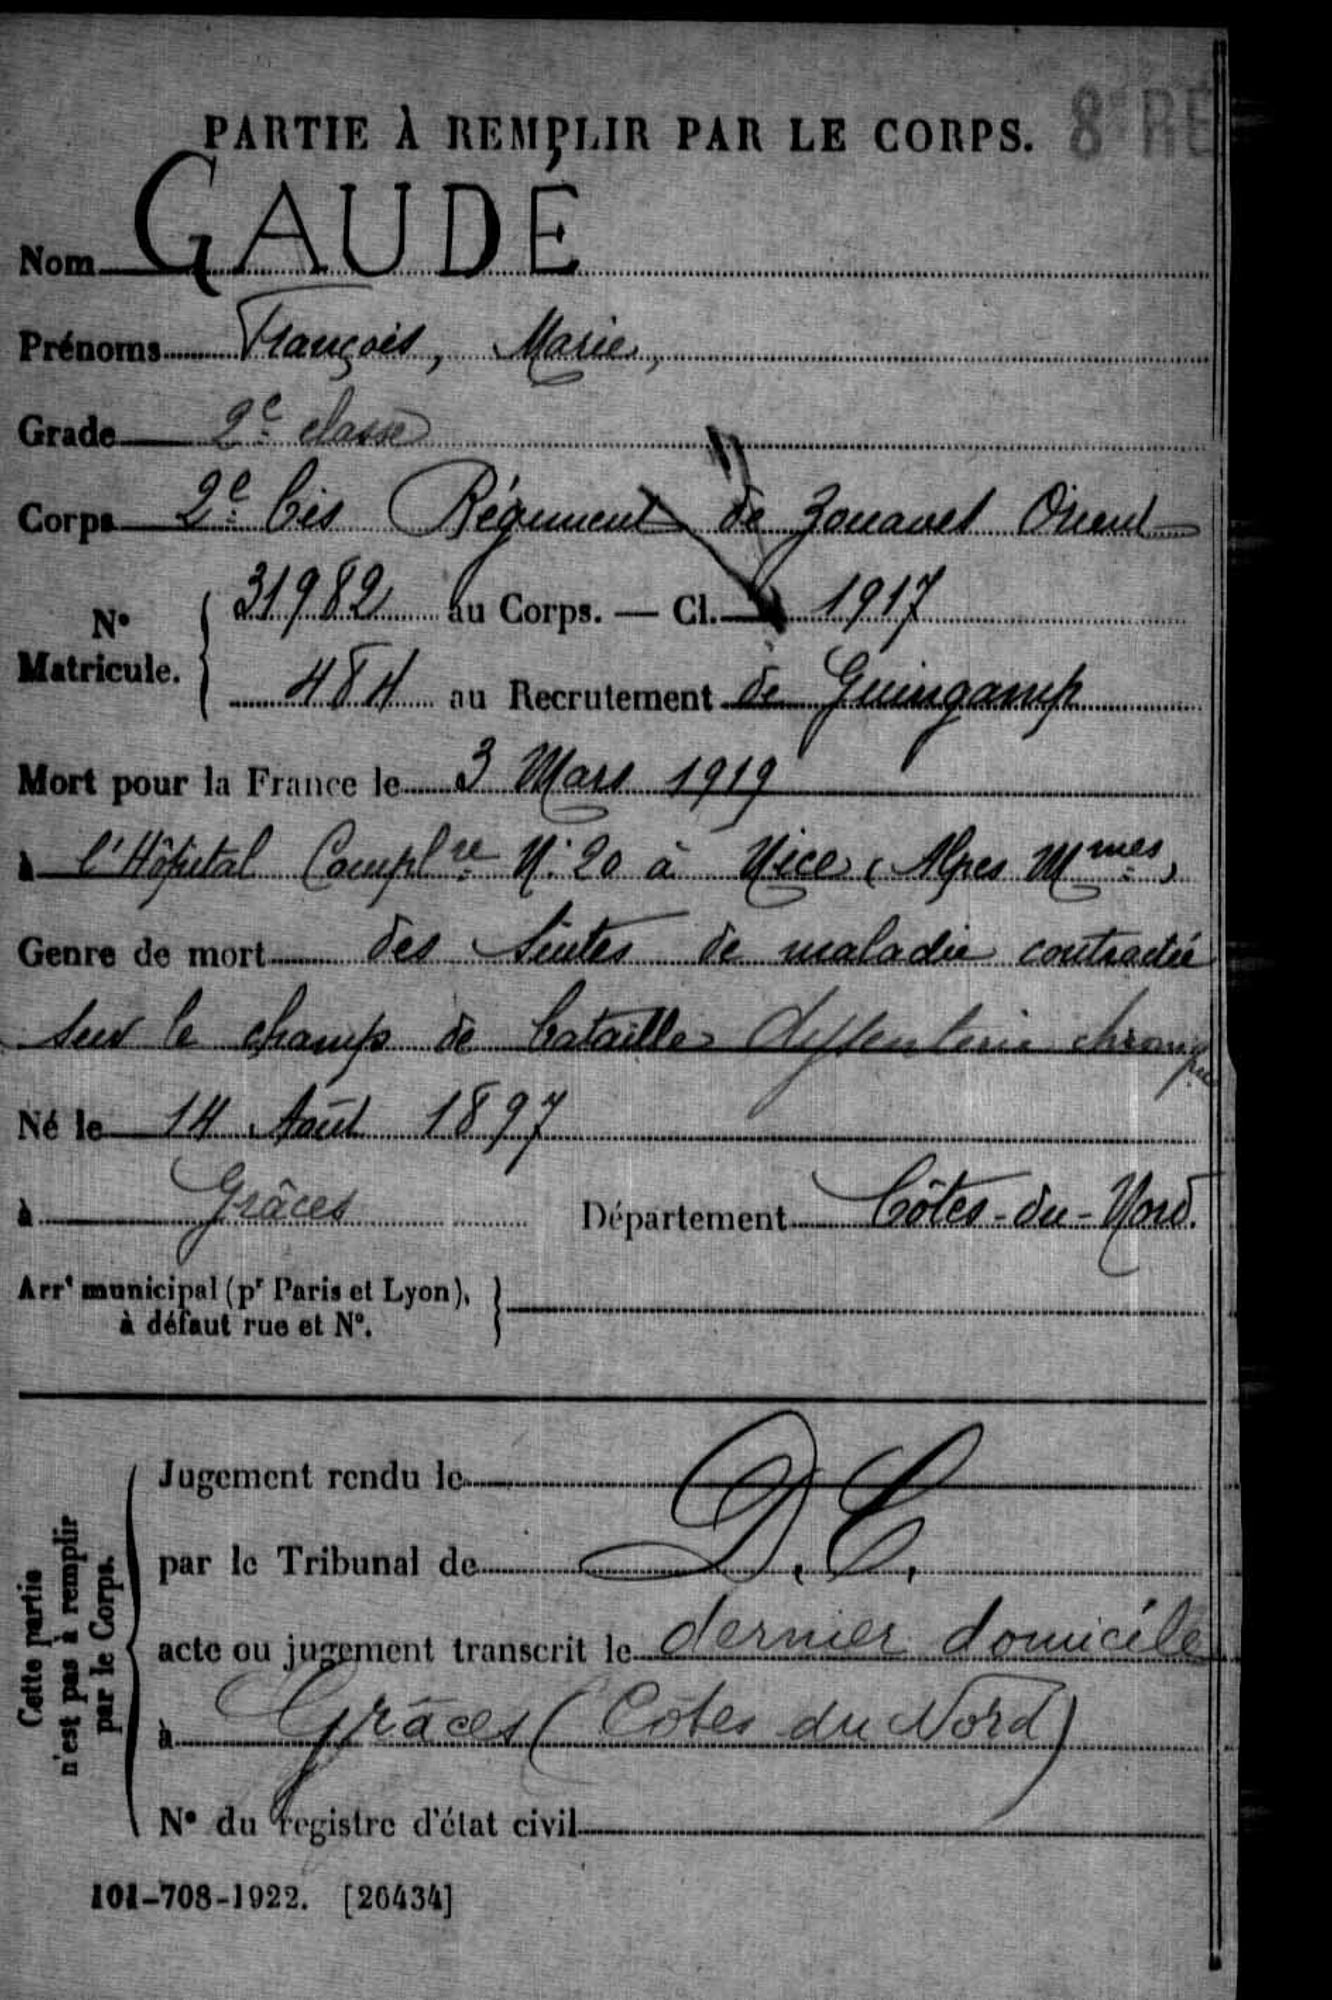 PARTIE À REMPLIR PAR LE CORPS.
8e RE
Nom GAUDÉ
Prénoms François, Marie,
Grade 2e classe
Corps 2e bis Régiment de Zouaves Orient
N° Matricule. { 31982 au Corps. — Cl. 1917
484 au Recrutement de Guingamp
Mort pour la France le 3 Mars 1919
à l'Hôpital Complre N° 20 à Nice (Alpes Mmes)
Genre de mort des suites de maladie contractée
sur le champ de bataille dyssenterie chronique
Né le 14 Août 1897
à Grâces Département Côtes-du-Nord.
Arrt municipal (pr Paris et Lyon),
à défaut rue et N°. }
Cette partie
n'est pas à remplir
par le Corps.
Jugement rendu le
par le Tribunal de D.C.
acte ou jugement transcrit le dernier domicile
à Grâces (Côtes du Nord)
N° du registre d'état civil
101-708-1922. [26434]